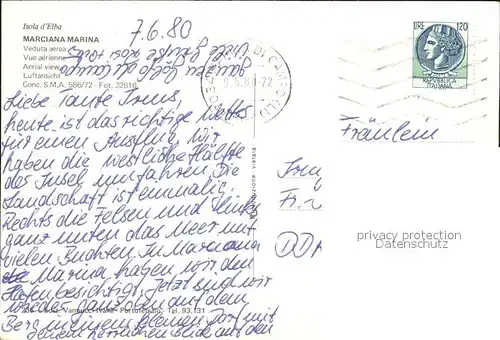 Isola d'Elba
MARCIANA MARINA
Veduta aerea
Vue aérienne
Aerial view
Luftansicht
Conc. S.M.A. 586/72 · Fot. 32616
7.6.80
LIRE 120
REPUBBLICA ITALIANA
Liebe Tante Irms,
heute ist das richtige Wetter
für einen Ausflug. Wir
haben die westliche Hälfte
der Insel umfahren. Die
Landschaft ist einmalig.
Rechts die Felsen und links
ganz unten das Meer mit
vielen Buchten. In Marciana
Marina haben wir den
Hafen besichtigt. Jetzt sind wir
wieder ganz oben auf dem
Berg in einem kleinen Dorf mit
einem herrlichen Blick auf den
ganzen Golf
Viele Grüsse
Fräulein
Irm
Fr.
DDR
privacy protection
Datenschutz
Tel. 93.131